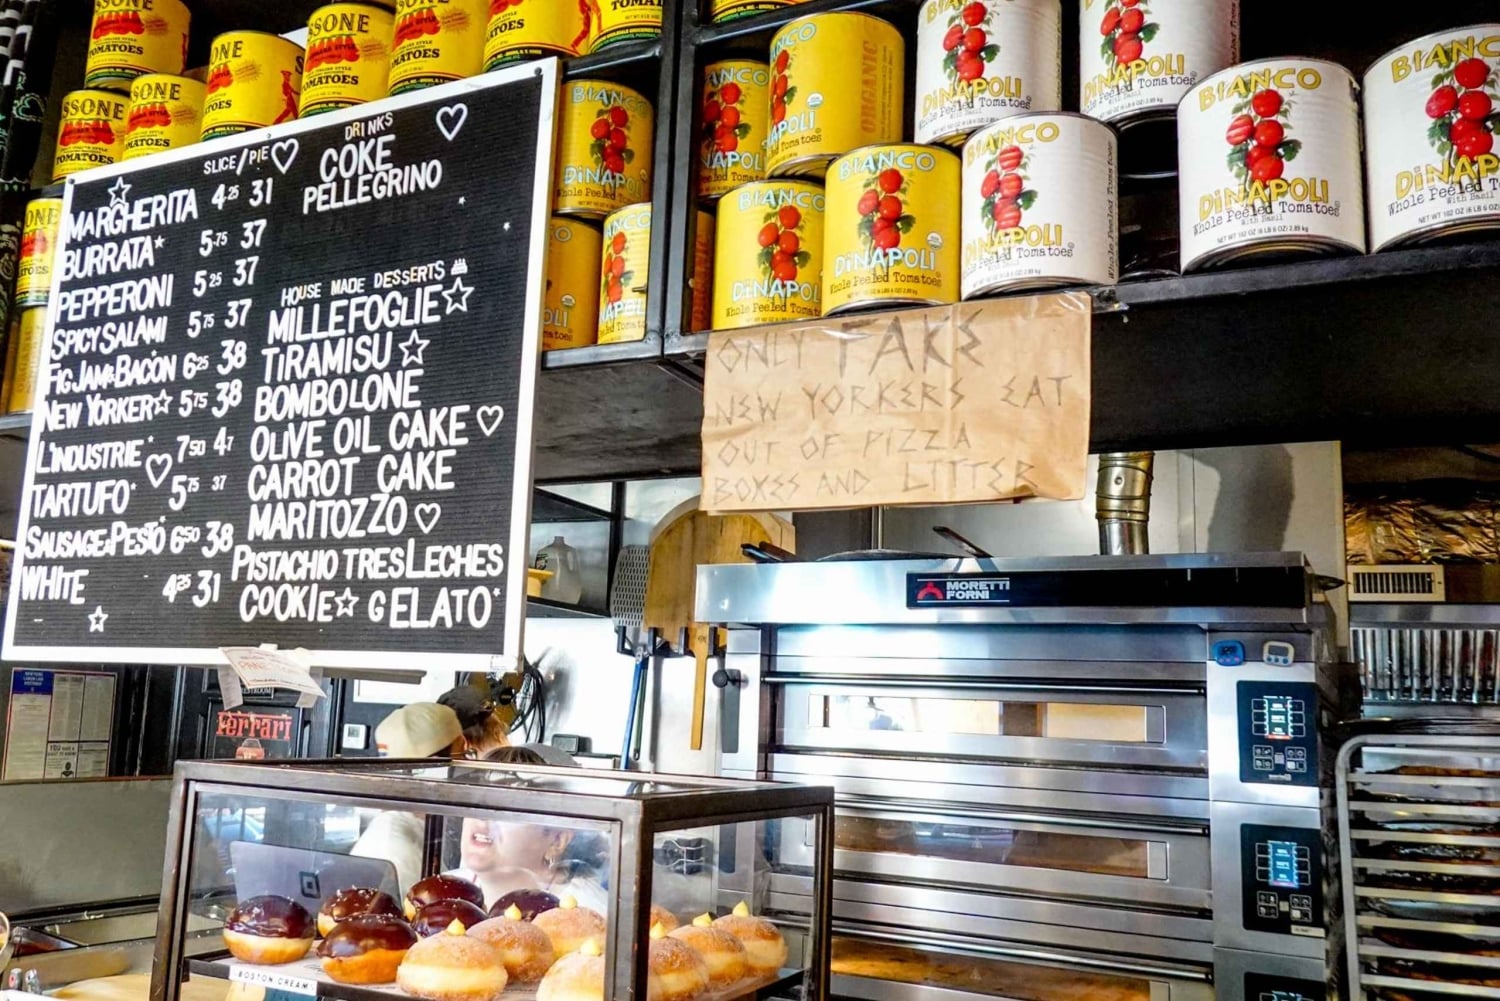 SLICE/PIE
MARGHERITA 4.25 31
BURRATA* 5.75 37
PEPPERONI 5.25 37
SPICY SALAMI 5.75 37
FIG JAM & BACON 6.25 38
NEW YORKER 5.75 38
L'INDUSTRIE* 7.50 47
TARTUFO* 5.75 37
SAUSAGE & PESTO 6.50 38
WHITE 4.25 31
DRINKS
COKE
PELLEGRINO
HOUSE MADE DESSERTS
MILLEFOGLIE
TIRAMISU
BOMBOLONE
OLIVE OIL CAKE
CARROT CAKE
MARITOZZO
PISTACHIO TRES LECHES
COOKIE GELATO*
ONLY FAKE
NEW YORKERS EAT
OUT OF PIZZA
BOXES AND LITTER
SSONE
TOMATOES
BIANCO
DiNAPOLI
Whole Peeled Tomatoes
ORGANIC
BIANCO
DiNAPOLI
Whole Peeled Tomatoes
With Basil
NET WT 102 OZ (6 LB 6 OZ) 2.89 kg
MORETTI
FORNI
RESTROOM
Ferrari
BOSTON CREAM